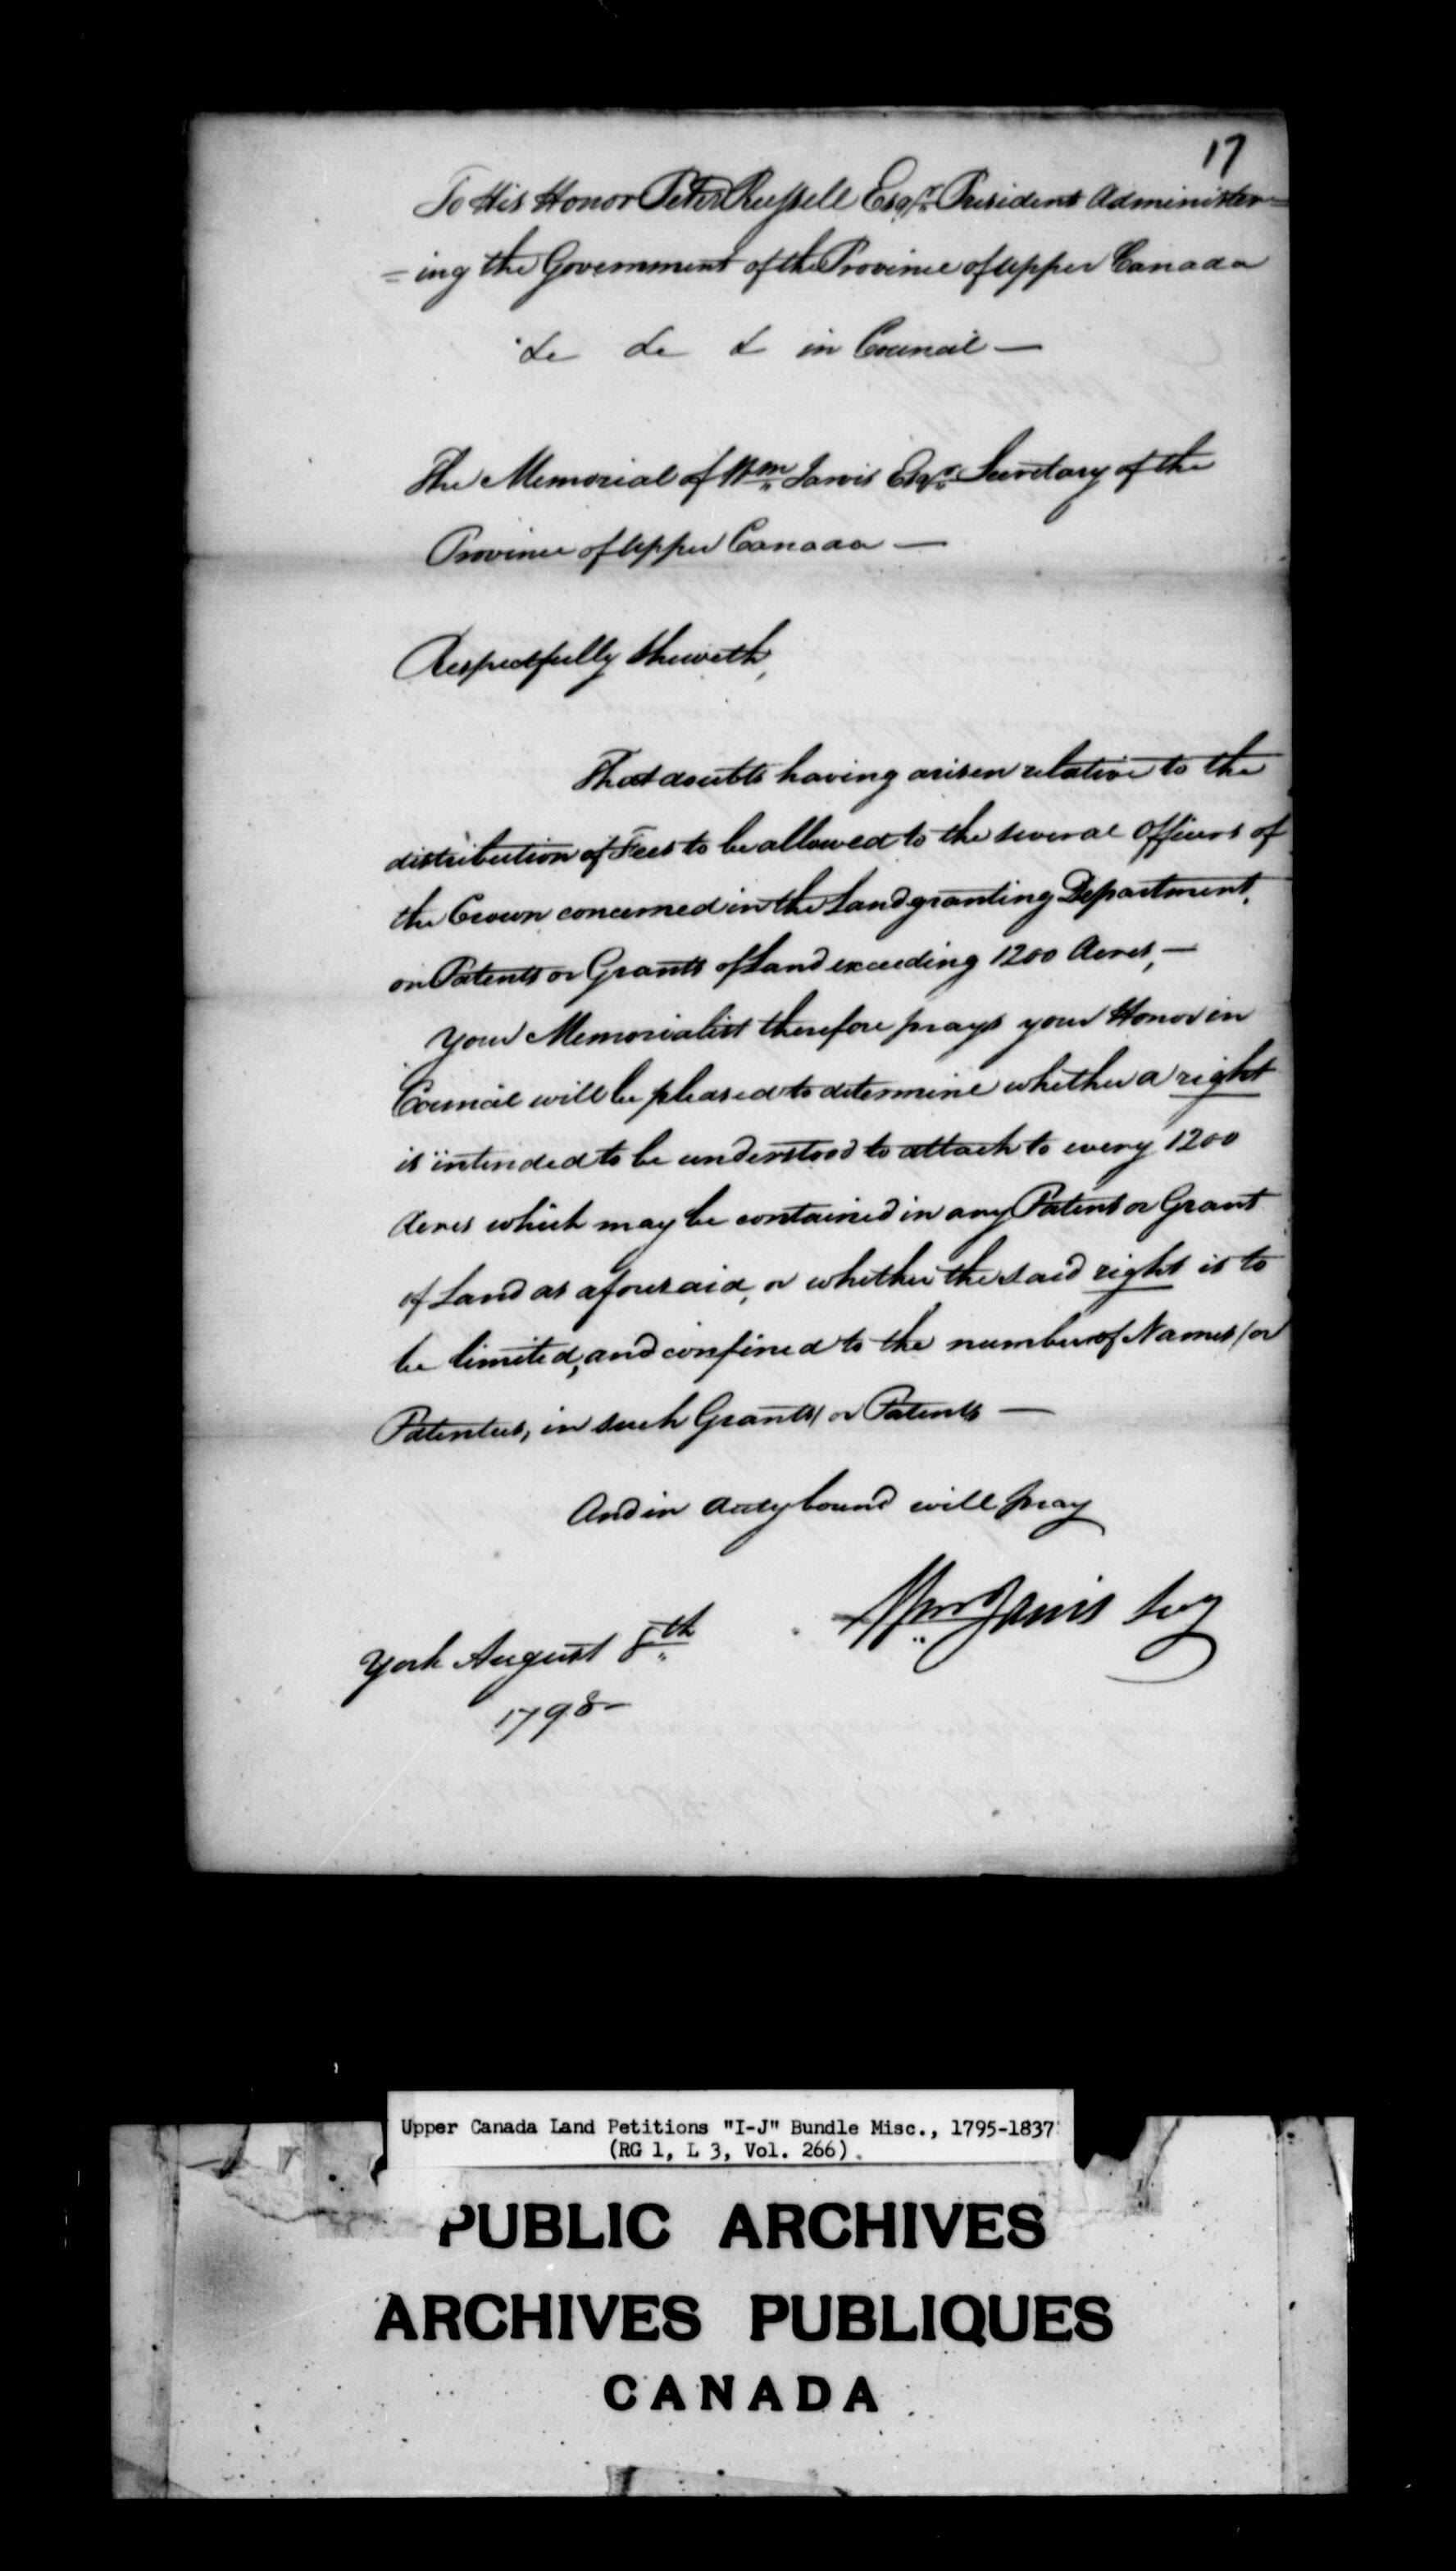 17
To His Honor Peter Russell Esqr. President Administer=
=ing the Government of the Province of Upper Canada
&c &c & in Council —
The Memorial of Wm Jarvis Esqr. Secretary of the
Province of Upper Canada —
Respectfully Sheweth,
That doubts having arisen relative to the
distribution of Fees to be allowed to the several Officers of
the Crown concerned in the Land granting Department,
on Patents or Grants of Land exceeding 1200 Acres, —
Your Memorialist therefore prays your Honor in
Council will be pleased to determine whether a right
is intended to be understood to attach to every 1200
Acres which may be contained in any Patent or Grant
of Land as aforesaid, or whether the said right is to
be limited, and confined to the number of Names (or
Patentees, in such Grants) or Patents —
And in duty bound will pray
Wm Jarvis Secy
York August 8th
1798 —
Upper Canada Land Petitions "I-J" Bundle Misc., 1795-1837
(RG 1, L 3, Vol. 266).
PUBLIC ARCHIVES
ARCHIVES PUBLIQUES
CANADA